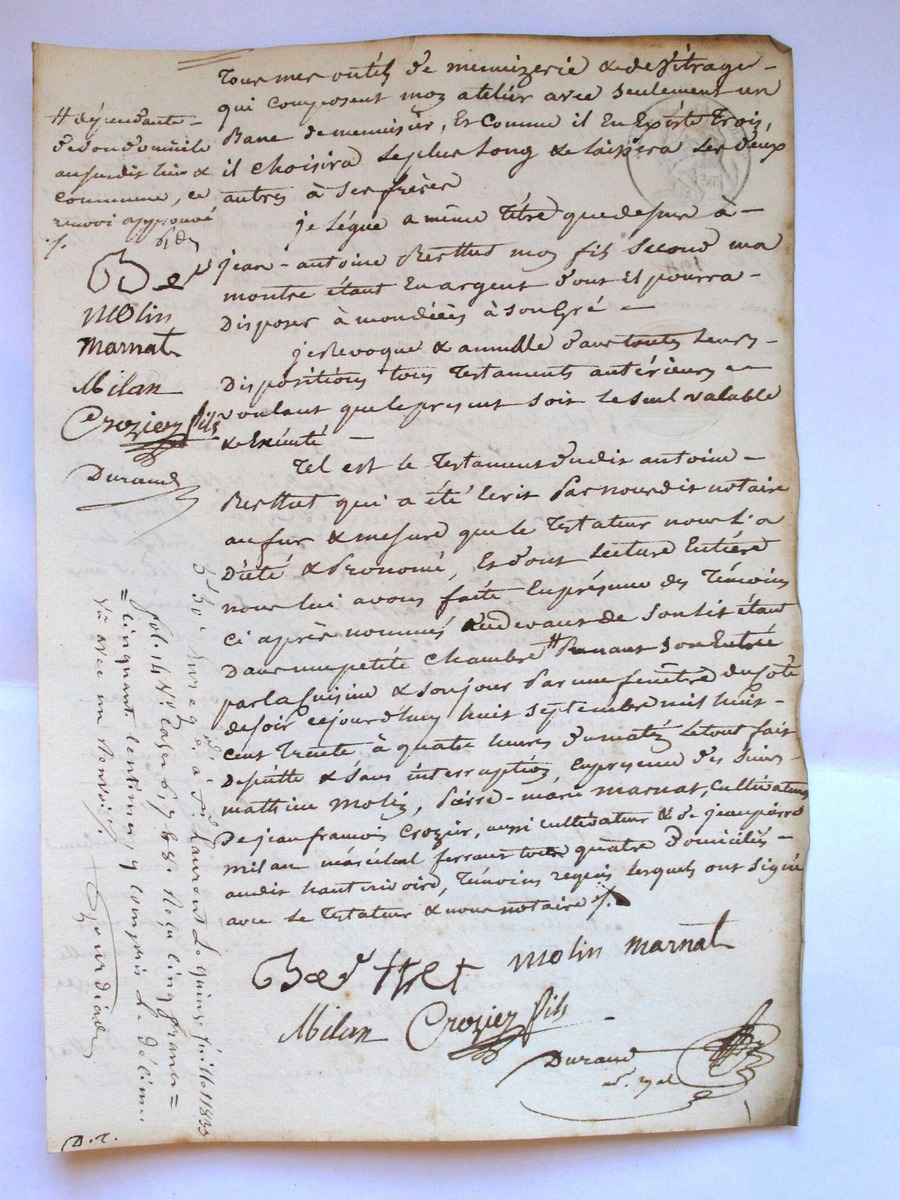 Tous mes outils de menuizerie & de Vitrage
qui composent mon atelier avec seulement un
Banc de menuisier, Et Comme il En Existe Trois,
il choisira le plus Long & laissera Les deux
autres à ses frères
je Légue a même Titre que dessus à
jean-antoine Resttut mon fils Second ma
montre étant En argent dont il pourra
Disposer à mon décès à son Gré
je Revoque & annulle dans toutes Leurs
Dispositions tous Testaments antérieurs
voulant que le present soit le seul valable
& Exécuté
Tel est le Testament dudit antoine
Resttut qui a été Ecrit par nous dit notaire
au fur & mesure que le Testateur nous l'a
Dicté & Prononcé, Et dont Lecture Entière
nous lui avons faite En présence des Témoins
ci après nommés au devant de son lit étant
Dans une petite chambre # Prenant son Entrée
par la Cuisine & son jour par une fenêtre du Coté
de soir cejourd'huy huit septembre mil huit
cent Trente à quatre heures du matin Le tout fait
de suitte & sans interruption, en presence des sieurs
mathieu Molin, Pierre-marie marnat, Cultivateurs
De jean francois Crozier, aussi cultivateur & de jean pierre
milan maréchal ferrant tous quatre Domiciliés
audit hauterivoire, Témoins requis lesquels ont signé
avec le Testateur & nous notaire ./.
Resttut molin marnat
Milan Crozier fils
Durand
# dépendante
de son domicile
au susdit lieu &
commune, ce
renvoi approuvé
./.
molin
marnat
Milan
Crozier fils
Durand
Enregé. à St. Laurent Le quinze juillet 1833
fol. 14 Vo. Cases 6, 7 & 8. Reçu cinq francs
cinquante centimes y compris le décime
avec un Renvoi ./.
D. r.